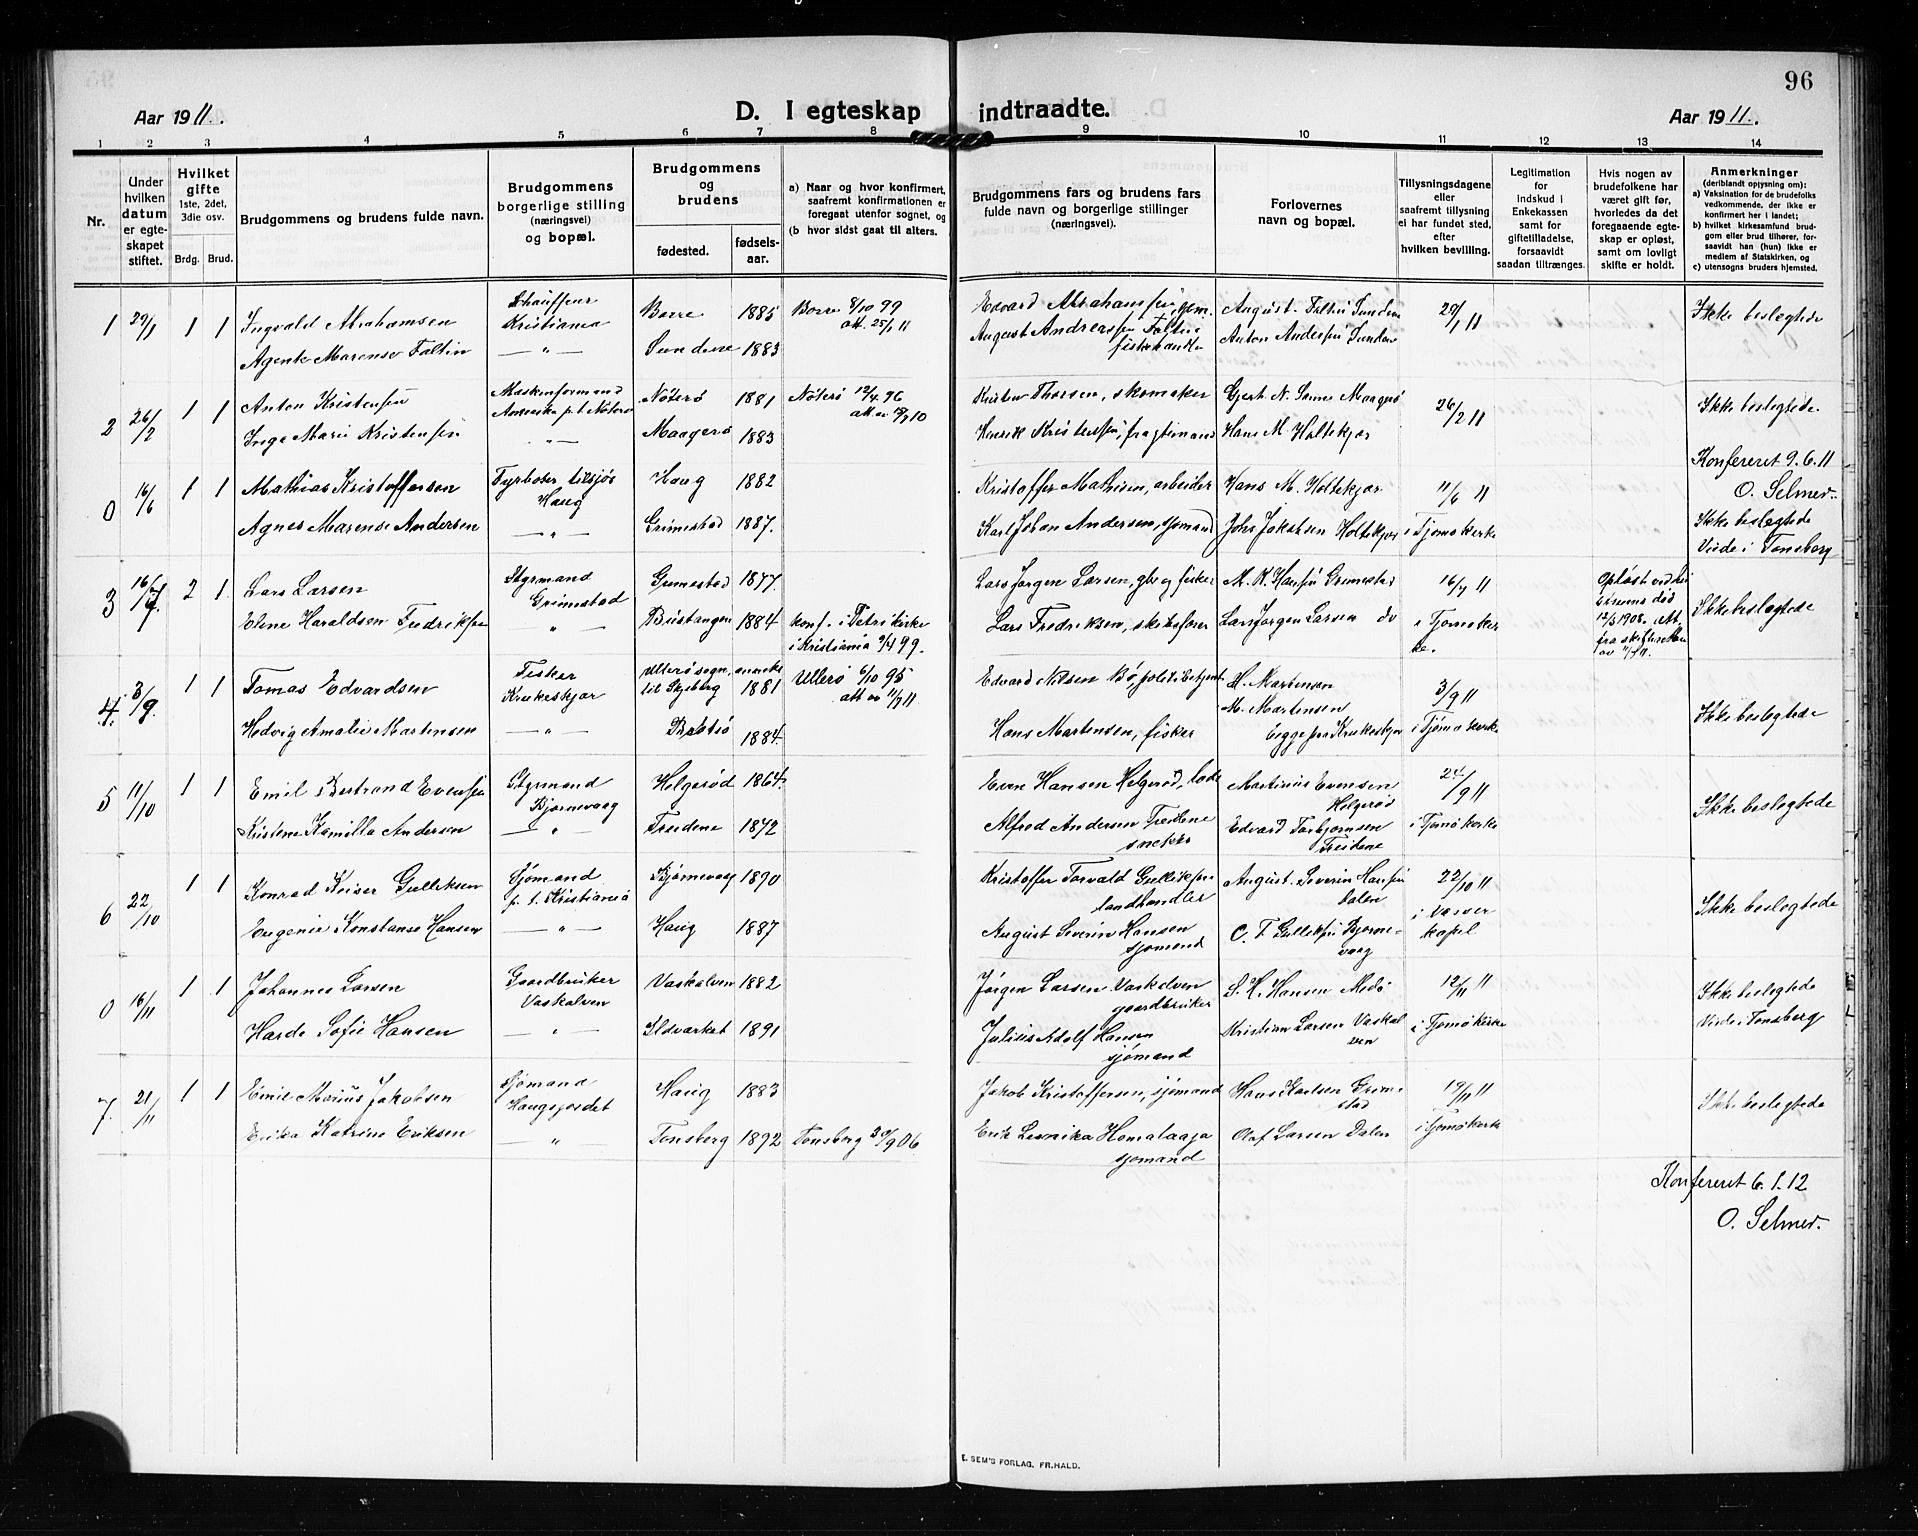 96
Aar 1911.
D. I egteskap indtraadte.
Aar 1911.
1 2 3 4 5 6 7 8 9 10 11 12 13 14
Nr.
Under hvilken datum er egteskapet stiftet.
Hvilket gifte 1ste, 2det, 3die osv.
Brdg. Brud.
Brudgommens og brudens fulde navn.
Brudgommens borgerlige stilling (næringsvei) og bopæl.
Brudgommens og brudens
fødested.
fødselsaar.
a) Naar og hvor konfirmert, saafremt konfirmationen er foregaat utenfor sognet, og
(b hvor sidst gaat til alters.
Brudgommens fars og brudens fars fulde navn og borgerlige stillinger (næringsvei).
Forlovernes navn og bopæl.
Tillysningsdagene eller saafremt tillysning ei har fundet sted, efter hvilken bevilling.
Legitimation for Indskud i Enkekassen samt for giftetilladelse, forsaavidt saadan tiltrænges.
Hvis nogen av brudefolkene har været gift før, hvorledes da det foregaaende egteskap er opløst, samt om lovligt skifte er holdt.
Anmerkninger (deriblandt opjysning om):
a) Vaksination for de brudefolks vedkommende, der ikke er konfirmert her i landet;
b) hvilket kirkesamfund brudgom eller brud tilhører, forsaavidt han (hun) ikke er medlem af Statskirken, og
c) utensogns bruders hjemsted.
1 29/1 1 1 Ingvald Abrahamsen Chauffeur Kristiania Borre 1885 Borre 8/10 99 att. 25/1 11 Edvard Abrahamsen, August Faltin Sundene 29/1 11 Ikke beslegtede
Agente Marense Faltin — " — Sundene 1883 August Andreassen Faltin fiskehandler Anton Andersen Sundene
2 26/2 1 1 Anton Kristensen Amerika p.t. Nøterø Nøterø 1881 Nøterø 12/4 96 Kristen Thorsen, skomaker Gjert N. Sonne Maagerø 26/2 11 Ikke beslegtede
Inga Marie Kristensen — " — Maagerø 1883 Henrik Kristensen, fragtemand Hans M. Holtekjær
Konfereret 9.6.11
O. Selmer.
0 16/6 1 1 Mathias Kristoffersen Fyrbøter tilsjøs Haug Haug 1882 Kristoffer Mathisen, arbeider Hans M. Holtekjær 11/6 11
Agnes Marense Andersen — " — Grimestad 1887. Karl Johan Andersen, sjømand Johs Jakobsen Holtekjær i Tjømø kirke Ikke beslegtede Viede i Tønsberg
3 16/7 2 1 Lars Larsen Styrmand Grimestad Grimestad 1877. Lars Jørgen Larsen, gbr og fisker M. K. Hansen Grimestad 16/7 11 Opløst ved 12/3 1908. Att. fra skifteretten Ikke beslegtede
Elene Haraldsen Fredriksen — " — Bustangen 1884 konf. i Petri kirke i Kristiania 9/4 99. Lars Fredriksen, skibsfører Lars Jørgen Larsen do i Tjømø kirke.
4. 3/9 1 1 Tomas Edvardsen Fisker Krukeskjær Ullerø sogn, anneks til Skjeberg 1881 Ullerø 6/10 95 Edvard Nilsen Bø, politibetjent H. Martensen 3/9 11
Hedvig Amalie Martensen — " — 1884. Hans Martensen, fisker M. Martensen begge fra Krukeskjær i Tjømø kirke Ikke beslegtede
5 11/10 1 1 Emil Bertrand Evensen Styrmand Bjørnevaag Helgerød 1864. Even Hansen Helgerød, lods Martinius Evensen Helgerød 24/9 11 Ikke beslegtede
Kristene Kamilla Andersen — " — Treidene 1872 Alfred Andersen Treidene snekker Edvard Torbjørnsen Treidene i Tjømø kirke
6 22/10 1 1 Konrad Keiser Gulliksen Sjømand p.t. Kristiania Bjørnevaag 1890 Kristoffer Torvald Gulliksen landhandler August Severin Hansen Dalen 22/10 11 Ikke beslegtede
Eugenie Konstanse Hansen — " — Haug 1887 August Severin Hansen sjømand C. T. Gulliksen Bjørnevaag i Vasser kapel
0 16/11 1 1 Johannes Larsen Gaardbruker Vaskalven Vaskalven 1882 Jørgen Larsen Vaskalven gaardbruker S. H. Hansen Medø 12/11 11 Ikke beslegtede Viede i Tønsberg
Harda Sofie Hansen — " — Ildverket 1891 Julius Adolf Hansen sjømand Kristian Larsen Vaskalven i Tjømø kirke
7 21/11 1 1 Emil Marius Jakobsen Sjømand Haugsjordet Haug 1883 Jakob Kristoffersen, sjømand Hans Karlsen Grimestad 19/11 11 Ikke beslegtede
Erika Katrine Eriksen — " — Tønsberg 1892 Tønsberg 30/9 06. Erik Leonika Homalaaja sjømand Olaf Larsen Dalen i Tjømø kirke
Konfereret 6.1.12
O. Selmer.
E. SEM'S FORLAG, FR.HALD.